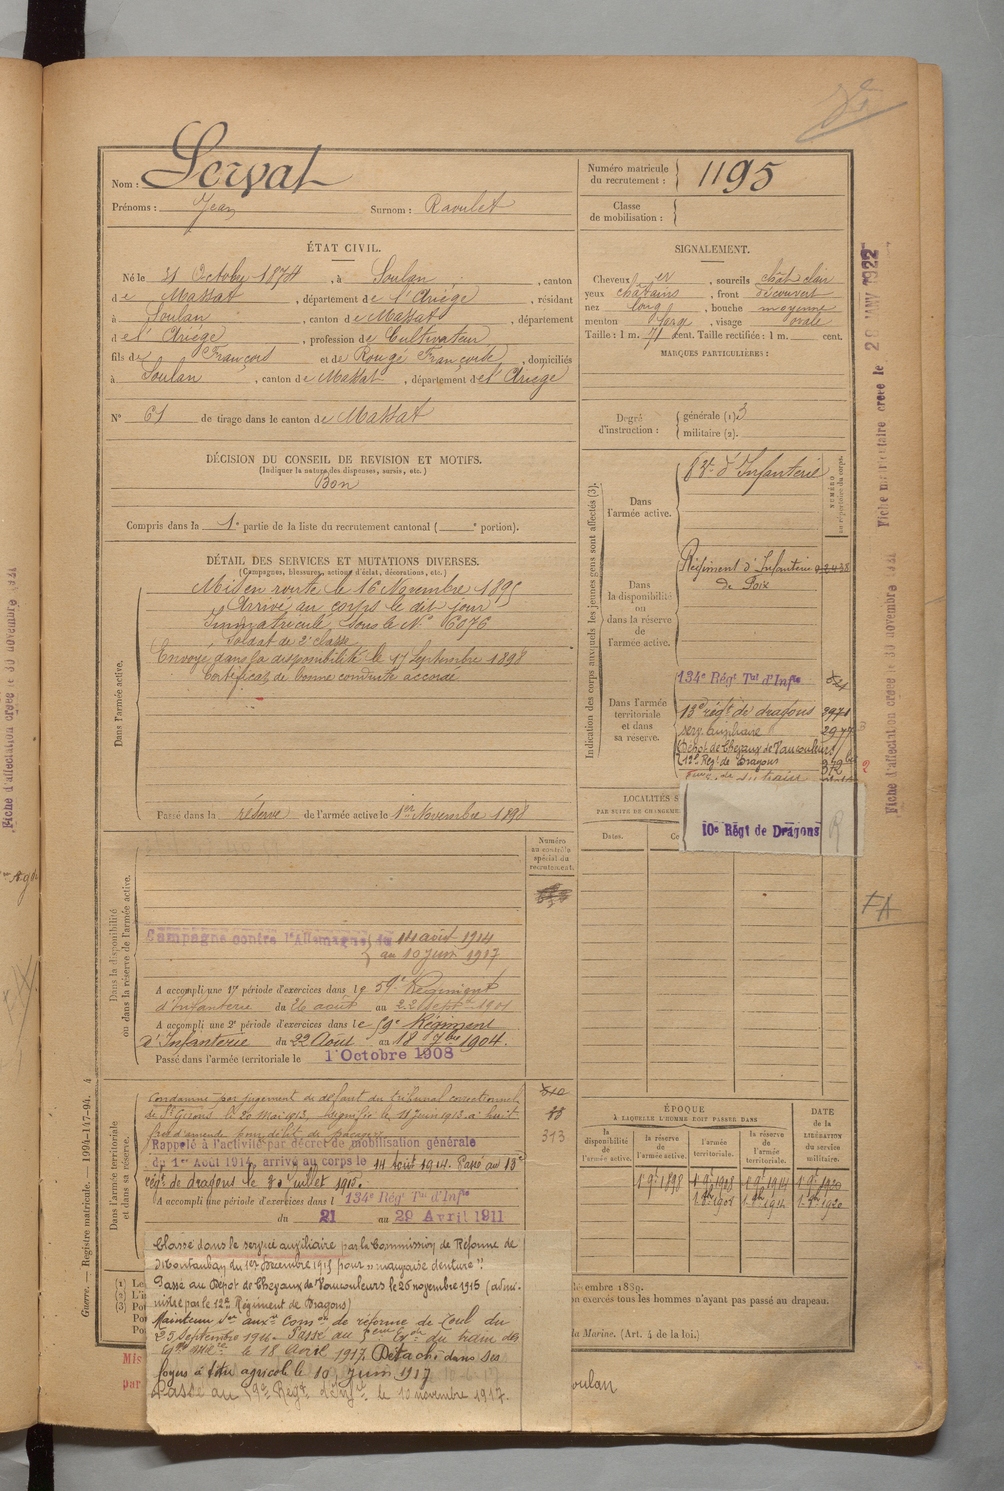 Nom : Servat
Prénoms : Jean Surnom : Raoulet
Numéro matricule du recrutement : 1195
Classe de mobilisation :
ÉTAT CIVIL.
Né le 31 Octobre 1874, à Soulan, canton
de Massat, département de l'Ariége, résidant
à Soulan, canton de Massat, département
de l'Ariége, profession de Cultivateur
fils de François et de Rougé Françoise, domiciliés
à Soulan, canton de Massat, département de l'Ariége
N° 61 de tirage dans le canton de Massat
DÉCISION DU CONSEIL DE REVISION ET MOTIFS.
(Indiquer la nature des dispenses, sursis, etc.)
Bon
Compris dans la 1e partie de la liste du recrutement cantonal ( e portion).
DÉTAIL DES SERVICES ET MUTATIONS DIVERSES.
(Campagnes, blessures, actions d'éclat, décorations, etc.)
Dans l'armée active.
Mis en route le 16 Novembre 1895
Arrivé au corps le dit jour
Immatriculé sous le N° 6076
Soldat de 2e classe
Envoyé dans la disponibilité le 17 Septembre 1898
Certificat de bonne conduite accordé
Passé dans la réserve de l'armée active le 1er Novembre 1898
Numéro au contrôle spécial du recrutement.
Dans la disponibilité ou dans la réserve de l'armée active.
Campagne contre l'Allemagne du 14 août 1914
au 10 juin 1917
A accompli une 1re période d'exercices dans le 59e Régiment
d'Infanterie du 26 août au 22 Sept. 1901
A accompli une 2e période d'exercices dans le 59e Régiment
d'Infanterie du 22 Août au 18 7bre 1904.
Passé dans l'armée territoriale le 1 Octobre 1908
Dans l'armée territoriale et dans sa réserve.
Condamné par jugement de défaut du tribunal correctionnel
de St Girons le 26 Mai 1913, signifié le 11 juin 1913 à huit
frs d'amende pour délit de pacage
313
Rappelé à l'activité par décret de mobilisation générale
du 1er Août 1914, arrivé au corps le 14 Août 1914. Passé au 13e
régt de dragons le juillet 1915.
A accompli une période d'exercices dans l 134e Régt Tal d'Infie
du 21 au 29 Avril 1911
Classé dans le service auxiliaire par la Commission de Réforme de
Montauban du 1er Décembre 1915 pour "mauvaise denture".
Passé au Dépôt de Chevaux de Vaucouleurs le 26 novembre 1916 (admi-
nistré par le 12e Régiment de Dragons)
Maintenu Ser aux. Comon de réforme de Toul du
25 Septembre 1916. Passé au Eon du train des
Eqges le 18 Avril 1917. Détaché dans ses
foyers à titre agricole le 10 juin 1917
Passé au 9e Régt le 10 novembre 1917.
SIGNALEMENT.
Cheveux et, sourcils chât clair
yeux châtains, front découvert
nez long, bouche moyenne
menton large, visage ovale
Taille : 1 m. 71 cent. Taille rectifiée : 1 m. cent.
MARQUES PARTICULIÈRES :
Degré d'instruction : générale (1) 3
militaire (2).
Indication des corps auxquels les jeunes gens sont affectés (3).
NUMÉRO au répertoire du corps.
Dans l'armée active.
83e d'Infanterie
Dans la disponibilité ou dans la réserve de l'armée active.
Régiment d'Infanterie
de Foix
Dans l'armée territoriale et dans sa réserve.
134e Régt Tal d'Infie
13e régt de dragons 3971
serv. auxiliaire 2977
Dépôt de Chevaux de Vaucouleurs
12e Régt de Dragons
10e Régt de Dragons R
LOCALITÉS S
PAR SUITE DE CHANGEME
Dates. Co
ÉPOQUE
À LAQUELLE L'HOMME DOIT PASSER DANS
la disponibilité de l'armée active.
la réserve de l'armée active.
l'armée territoriale.
la réserve de l'armée territoriale.
DATE de la LIBÉRATION du service militaire.
1 9e 1898
décembre 1889.
n exercés tous les hommes n'ayant pas passé au drapeau.
la Marine. (Art. 4 de la loi.)
oulan
(1) Le
(2) L'i
(3) Po
Po
Po
Mis
par
Guerre. — Registre matricule. — 1994-147-94. 4
Fiche matriculaire créée le 20 JANV 1922
Fiche d'affectation créée le 30 novembre 1921
FA
Fiche d'affectation créée le 30 novembre 1921